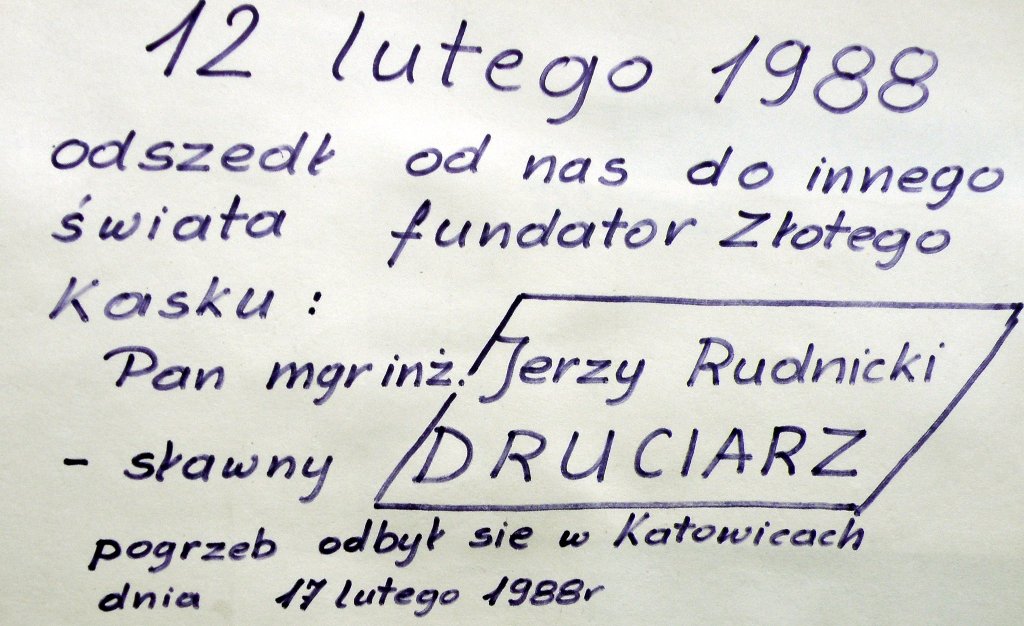 12 lutego 1988
odszedł od nas do innego
świata fundator Złotego
Kasku :
Pan mgr inż. Jerzy Rudnicki
- sławny DRUCIARZ
pogrzeb odbył się w Katowicach
dnia 17 lutego 1988r